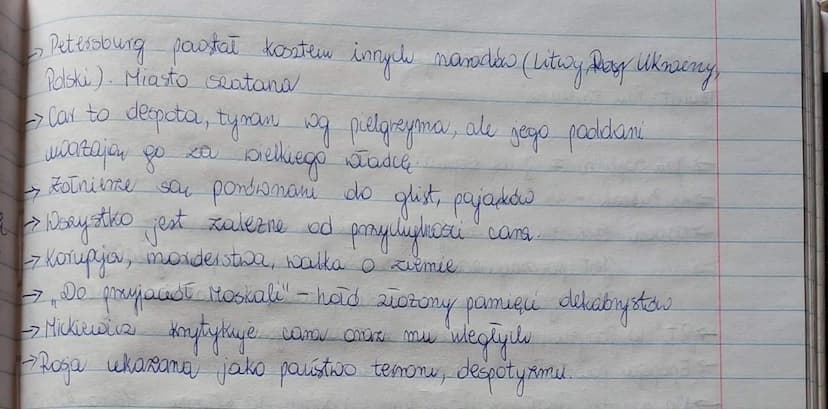 → Petersburg powstał kosztem innych narodów (Litwy, Ukrainy,
Polski). Miasto szatana
→ Car to despota, tyran wg pielgrzyma, ale jego poddani
uważają go za wielkiego władcę.
→ Żołnierze są porównani do glist, pająków
→ Wszystko jest zależne od przychylności cara.
→ Korupcja, morderstwa, walka o ziemie
→ „Do przyjaciół Moskali" – hołd złożony pamięci dekabrystów
→ Mickiewicz krytykuje cara oraz mu uległych
→ Rosja ukazana jako państwo terroru, despotyzmu.